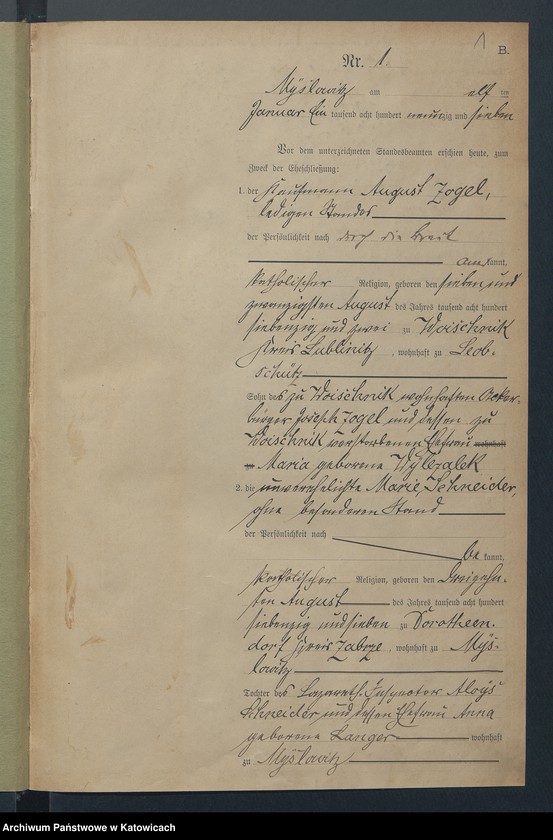 1
B.
Nr. 1.
Myslowitz am elf ten
Januar Ein tausend acht hundert neunzig und sieben
Vor dem unterzeichneten Standesbeamten erschien heute, zum
Zweck der Eheschließung:
1. der Kaufmann August Zogel,
ledigen Standes
der Persönlichkeit nach durch die Braut
anerkannt,
katholischer Religion, geboren den sieben und
zwanzigsten August des Jahres tausend acht hundert
siebenzig und zwei zu Woischnik
Kreis Lublinitz, wohnhaft zu Leob-
schütz
Sohn des zu Woischnik wohnhaften Acker-
bürger Joseph Zogel und dessen zu
Woischnik verstorbenen Ehefrau wohnhaft
zu Maria geborene Wylezalek
2. die unverehelichte Marie Schneider,
ohne besonderen Stand
der Persönlichkeit nach
be kannt,
katholischer Religion, geboren den dreizehn-
ten August des Jahres tausend acht hundert
siebenzig und sieben zu Dorotheen-
dorf Kreis Zabrze, wohnhaft zu Mys-
lowitz
Tochter des Lazareth-Inspector Aloys
Schneider und dessen Ehefrau Anna
geborene Langer wohnhaft
zu Myslowitz
Archiwum Państwowe w Katowicach